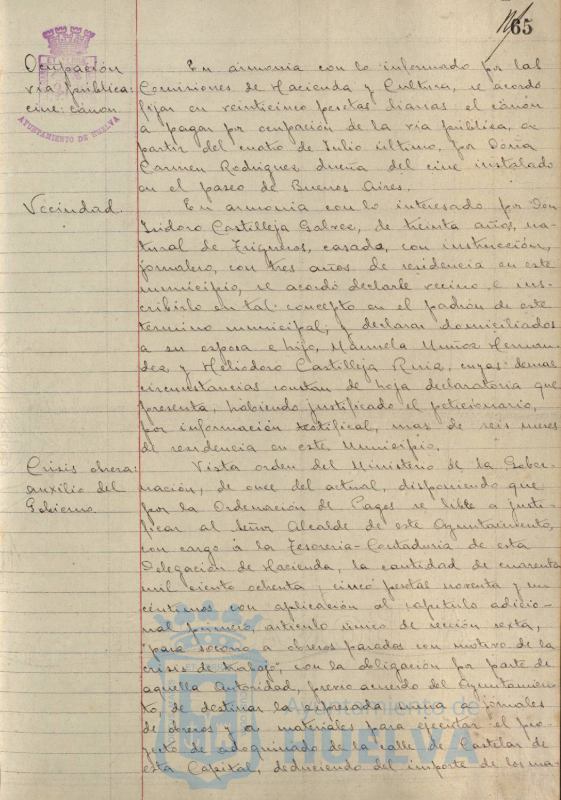 65
AYUNTAMIENTO DE HUELVA
Ocupación
vía pública:
cine: cánon
En armonia con lo informado por las
Comisiones de Hacienda y Cultura, se acordó
fijar en veinticinco pesetas diarias el cánon
a pagar por ocupación de la vía pública, a
partir del cuatro de Julio último, por Doña
Carmen Rodriguez dueña del cine instalado
en el paseo de Buenos Aires.
Vecindad.
En armonia con lo interesado por Don
Isidoro Castilleja de treinta años, na-
tural de Trigueros, casado, con instrucción,
jornalero, con tres años de residencia en este
municipio, se acordó declararle vecino e ins-
cribirlo en tal concepto en el padrón de este
término municipal; y declarar domiciliados
a su esposa e hijo, Manuela Muñoz Hernan-
dez y Heliodoro Castilleja Ruiz, cuyas demas
circunstancias constan de hoja declaratoria que
presenta, habiendo justificado el peticionario,
por información testifical, mas de seis meses
de residencia en este Municipio.
Crisis obrera:
auxilio del
Gobierno.
Vista orden del Ministerio de la Gober-
nación, de once del actual, disponiendo que
por la Ordenación de Pagos se libre a justi-
ficar al Señor Alcalde de este Ayuntamiento,
con cargo á la Tesoreria-Contaduria de esta
Delegación de Hacienda, la cantidad de cuarenta
mil ciento ochenta y cinco pesetas noventa y un
céntimos con aplicación al capitulo adicio-
nal primero, articulo único de sección sexta,
"para socorro a obreros parados con motivo de la
crisis de trabajo", con la obligación por parte de
aquella Autoridad, previo acuerdo del Ayuntamien-
to de destinar la expresada suma a jornales
de obreros y a materiales para ejecutar el pro-
yecto de adoquinado de la calle de Castelar de
esta Capital, deduciendo del importe de los ma-
Ayuntamiento de
HUELVA